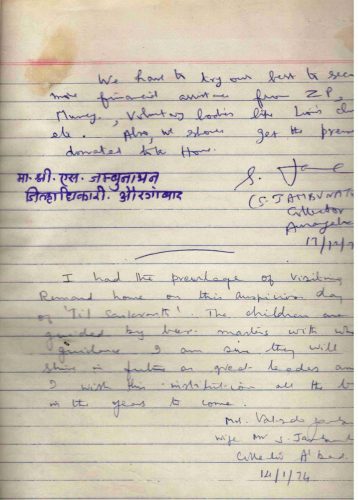 We have to try our best to
more financial assistance from Z.P,
Voluntary bodies like Lions
etc. Also, we should get the
donated the Home.
S.
मा. श्री. एस. जम्बुनाथन
जिल्हाधिकारी. औरंगाबाद
(S. JAMBUNAT
Collector
I had the privilege of visiting
Remand home on this auspicious day
of 'Til Sankrant'. The children are
guided by their masters with
guidance I am sure they will
shine in future as great leaders
I wish this institution all the
in the years to come.
Mrs.
wife Mr S.
Collector A'bad
14/1/74